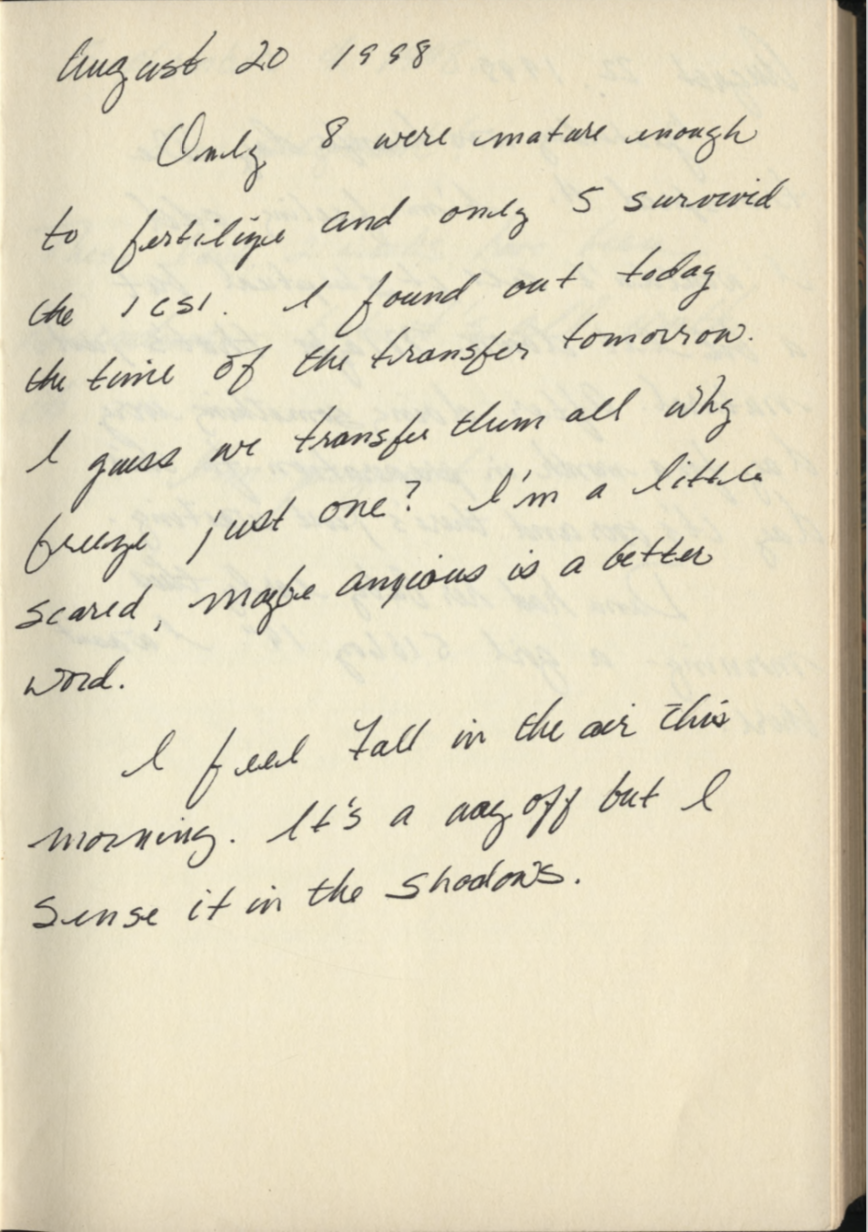 August 20 1998
Only 8 were mature enough
to fertilize and only 5 survivid
the ICSI. I found out today
the time of the transfer tomorrow.
I guess we transfer them all why
freeze just one? I'm a little
scared, maybe anxious is a better
word.
I feel Fall in the air this
morning. It's a way off but I
sense it in the shadows.